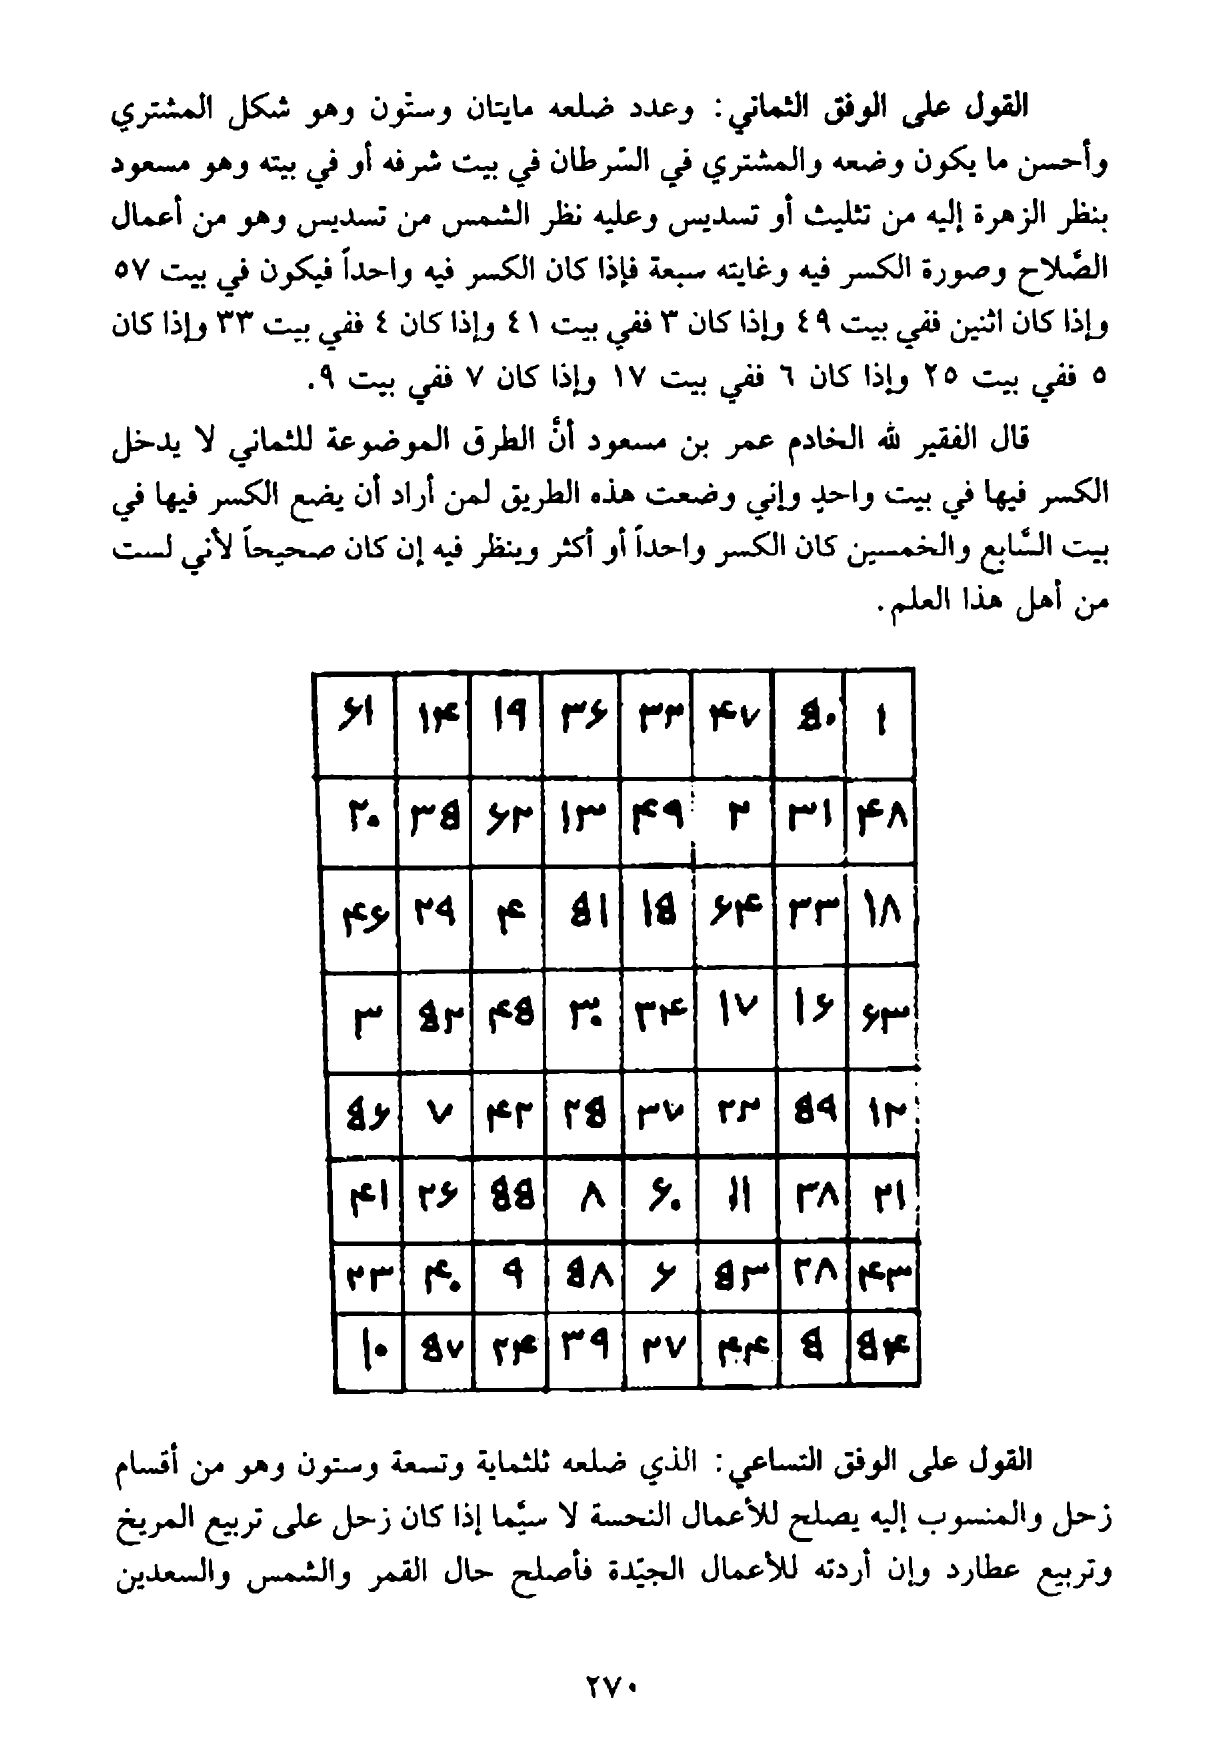 القول على الوفق الثماني: وعدد ضلعه مايتان وستّون وهو شكل المشتري
وأحسن ما يكون وضعه والمشتري في السّرطان في بيت شرفه أو في بيته وهو مسعود
بنظر الزهرة إليه من تثليث أو تسديس وعليه نظر الشمس من تسديس وهو من أعمال
الصَّلاح وصورة الكسر فيه وغايته سبعة فإذا كان الكسر فيه واحداً فيكون في بيت ٥٧
وإذا كان اثنين ففي بيت ٤٩ وإذا كان ٣ ففي بيت ٤١ وإذا كان ٤ ففي بيت ٣٣ وإذا كان
٥ ففي بيت ٢٥ وإذا كان ٦ ففي بيت ١٧ وإذا كان ٧ ففي بيت ٩.
قال الفقير لله الخادم عمر بن مسعود أنَّ الطرق الموضوعة للثماني لا يدخل
الكسر فيها في بيت واحدٍ وإني وضعت هذه الطريق لمن أراد أن يضع الكسر فيها في
بيت السَّابع والخمسين كان الكسر واحداً أو أكثر وينظر فيه إن كان صحيحاً لأني لست
من أهل هذا العلم.
١ ٥٠ ۴٧ ٣٢ ٣۶ ١٩ ١۴ ۶١
۴٨ ٣١ ٢ ۴٩ ١٣ ۶٢ ٣٥ ٢٠
١٨ ٣٣ ۶۴ ١٥ ٥١ ۴ ٢٩ ۴۶
۶٣ ١۶ ١٧ ٣۴ ٣٠ ۴٥ ٥٢ ٣
١٢ ٥٩ ٢٢ ٣٧ ٢٥ ۴٢ ٧ ٥۶
٢١ ٣٨ ١١ ۶٠ ٨ ٥٥ ٢۶ ۴١
۴٣ ٢٨ ٥٣ ۶ ٥٨ ٩ ۴٠ ٢٣
٥۴ ٥ ۴۴ ٢٧ ٣٩ ٢۴ ٥٧ ١٠
القول على الوفق التساعي: الذي ضلعه ثلثماية وتسعة وستون وهو من أقسام
زحل والمنسوب إليه يصلح للأعمال النحسة لا سيَّما إذا كان زحل على تربيع المريخ
وتربيع عطارد وإن أردته للأعمال الجيّدة فأصلح حال القمر والشمس والسعدين
٢٧٠